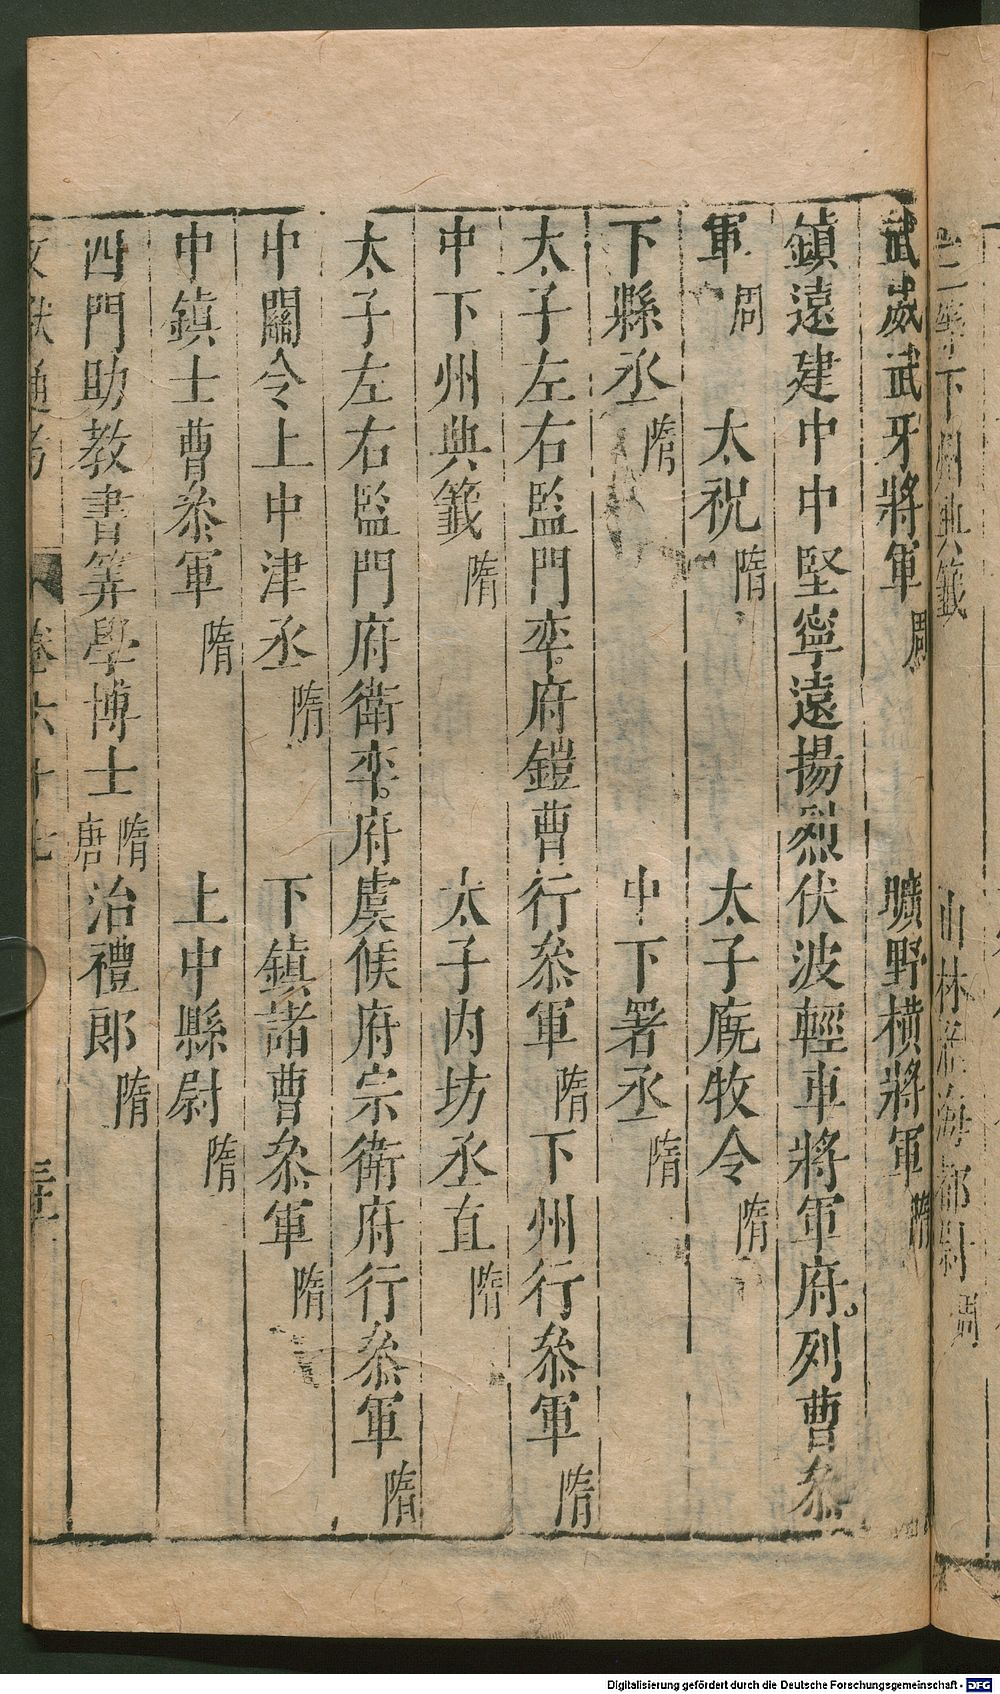 下州典籖
山林
海都尉周
武威武牙將軍周 曠野橫將軍隋
鎮遠建中中堅寧遠揚烈伏波輕車將軍府列曹叅
軍周 太祝隋 太子廐牧令隋
下縣丞隋 中下署丞隋
太子左右監門率府鎧曹行叅軍隋 下州行叅軍隋
中下州典籖隋 太子内坊丞直隋
太子左右監門府衛率府虞候府宗衛府行叅軍隋
中關令上中津丞隋 下鎮諸曹叅軍隋
中鎮士曹叅軍隋 上中縣尉隋
四門助教書筭學博士隋唐 治禮郎隋
文獻通考 卷六十七
Digitalisierung gefördert durch die Deutsche Forschungsgemeinschaft - DFG